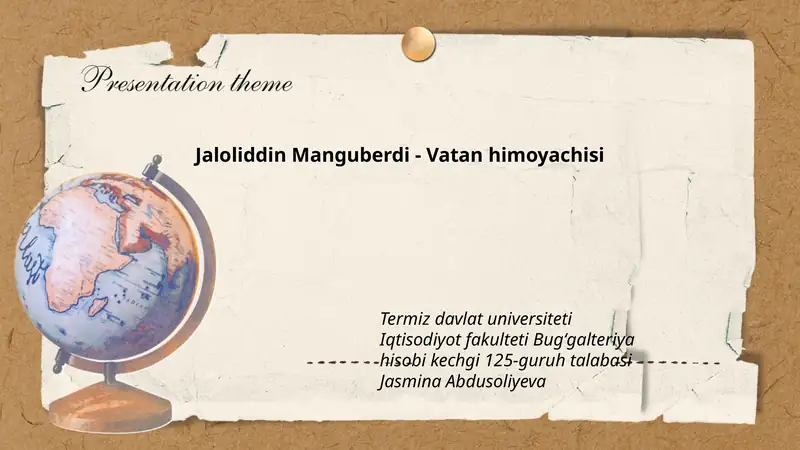 Presentation theme
Jaloliddin Manguberdi - Vatan himoyachisi
Termiz davlat universiteti
Iqtisodiyot fakulteti Bug‘galteriya
hisobi kechgi 125-guruh talabasi
Jasmina Abdusoliyeva